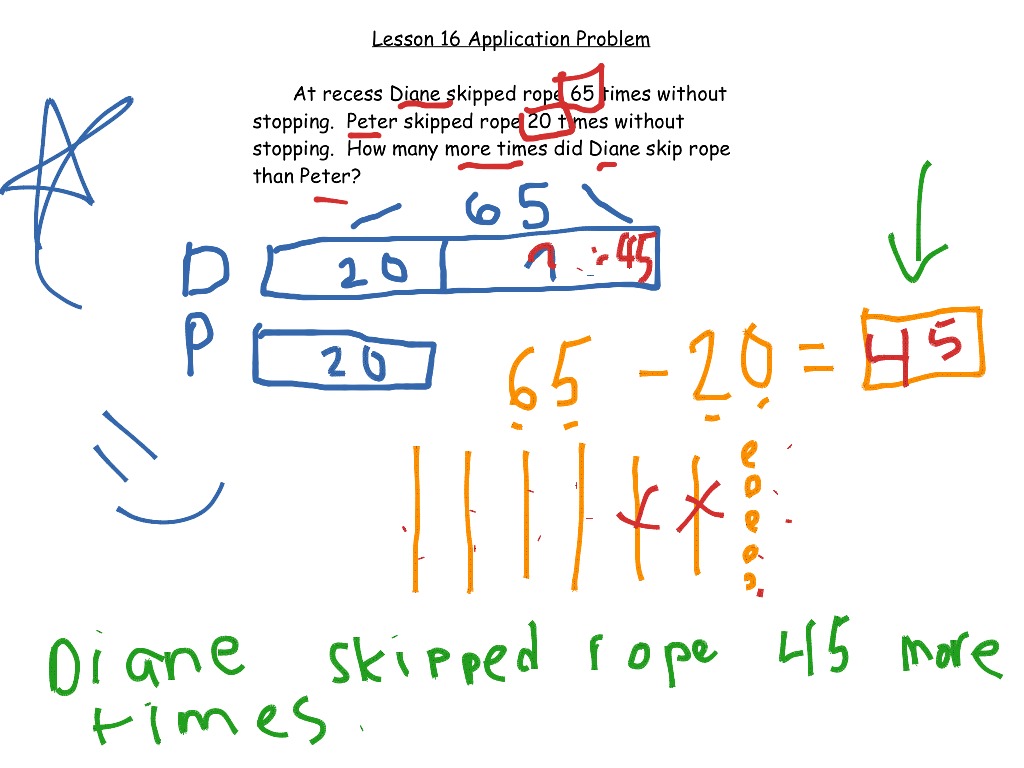 Lesson 16 Application Problem
At recess Diane skipped rope 65 times without
stopping. Peter skipped rope 20 times without
stopping. How many more times did Diane skip rope
than Peter?
65
D 20 ? = 45
P 20
65 - 20 = 45
Diane skipped rope 45 more
times.